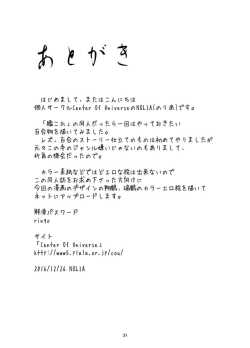 あとがき
はじめまして、またはこんにちは
個人サークルCenter Of UniverseのNOLIA(のりあ)です。
「艦これ」の同人だったら一回はやっておきたい
百合物を描いてみました。
レズ、百合のストーリー仕立てのものは初めてやりましたが
元々この手のジャンル嫌いじゃないのもありまして、
折角の機会だったので。
カラー表紙などではどエロな絵は出来ないので
この同人誌をお求め下さった方向けに
今回の漫画のデザインの翔鶴、瑞鶴のカラーエロ絵を描いて
ネットにアップロードします。
解凍パスワード
ringo
サイト
「Center Of Universe」
2016/12/26 NOLIA
31